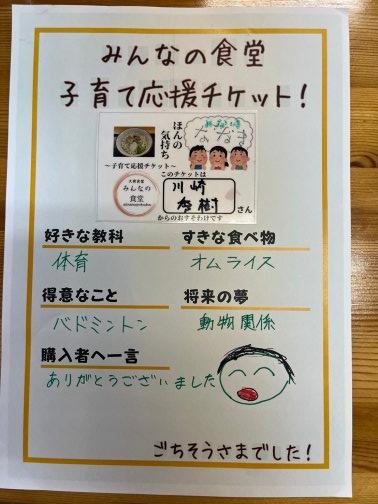 みんなの食堂
子育て応援チケット!
ほんの
気持ち
ななま
~子育て応援チケット~
このチケットは
大衆食堂
みんなの
食堂
川崎
秀樹
さん
からのおすそわけです
好きな教科
すきな食べ物
体育
オムライス
得意なこと
将来の夢
バドミントン
動物関係
購入者へ一言
ありがとうございました
ごちそうさまでした!